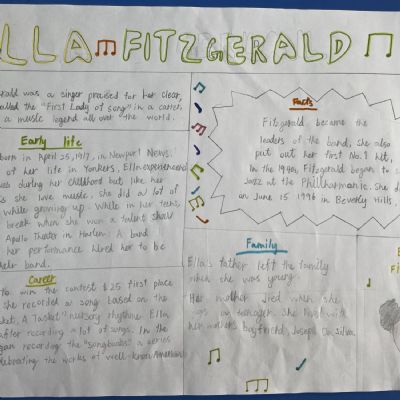 LLA FITZGERALD
rald was a singer praised for her clear,
alled the "First Lady of song" in a career,
a music legend all over the world.
Early life
born in April 25, 1917, in Newport News.
of her life in Yonkers. Ella experienced
ves during her childhood but like her
s she love music, she did a lot of
while growing up. While in her teens,
break when she won a talent show
Apollo Theater in Harlem. A band
her performance hired her to be
heir band.
Career
to win the contest $25 first place
she recorded a song based on the
ket, A Tasket" nursery rhythme. Ella
after recording a lot of songs. In the
gan recording the "songbooks" a series
lebrating the works of well-known American
Facts
Fitzgerald became the
leaders of the band, she also
put out her first No.1 hit,
In the 1940, Fitzgerald began to s
Jazz at the Philharmonic. She d
on June 15 1996 in Beverly Hills,
Family
Ella's father left the family
when she was young.
Her mother died when she
was a teenager. She lived with
her mothers boyfriend, Joseph Da Silva.
E
Fi